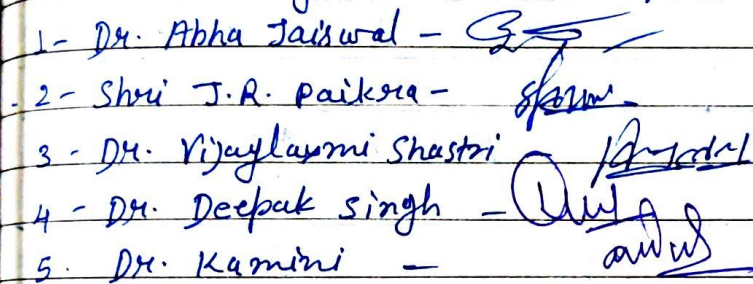 1- Dr. Abha Jaiswal -
2- Shri J.R. Paikra -
3 - Dr. Vijaylaxmi Shastri -
4 - Dr. Deepak Singh -
5. Dr. Kamini -